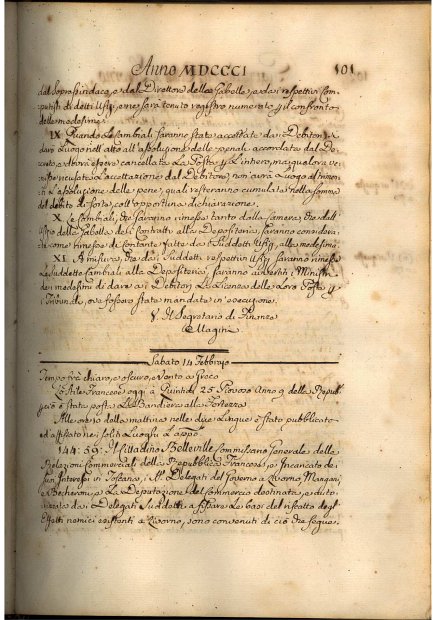 Anno MDCCCI
101
dal Soprassindaco, e dal Direttore delle Gabelle, e dai respettivi Com-
putisti di detti Ufizj, e ne sarà tenuto registro numerato p il confronto
delle medesime.
IX Quando le Cambiali saranno state accettate dai Debitori, si
darà luogo nell' atto all' assoluzione delle penali accordata dal De-
creto, e dovrà essere cancellata la Posta p l'intero, ma qualora ve-
nisse ricusata l'accettazione dal Debitore, non avrà luogo altrimen-
ti l'assoluzione delle pene, quali resteranno cumulate nella somma
del debito di sorte, coll' opportuna dichiarazione.
X Le Cambiali, che saranno rimesse tanto dalla Camera, che dall'
Ufizio della Gabella dei Contratti alla Depositeria, saranno considera-
te come rimesse di contante fatte dai suddetti Ufizj alla medesima.
XI A misura, che dai suddetti respettivi Ufizj saranno rimesse
le suddette Cambiali alla Depositeria, saranno avvertiti i Ministri
dei medesimi di dare ai Debitori la licenza delle loro Poste p i
Tribunali, ove fossero state mandate in esecuzione.
V. Il Segretario di Finanze
Magini
Sabato 14 Febbrajo
Tempo fra chiaro, e oscuro, e Vento a Greco
Lo Stile Francese oggi è Quintidì 25 Piovoso Anno 9 della Repub-
ca e è stata posta la Bandiera alla Fortezza
Alle ore della mattina nelle due Lingue è stato pubblicato
ed affisso nei soliti Luoghi
544: 59: Il Cittadino Belleville Commissario Generale delle
Relazioni Commerciali della Repubblica Francese, e Incaricato de'
suoi Interessi in Toscana, i Delegati del Governo a Livorno Mangani,
e Bicheroni, e la Deputazione del Commercio destinata, e auto-
rizzata dai Delegati Suddetti a fissare le basi del riscatto degli
Effetti nemici esistenti a Livorno, sono convenuti di ciò che segue.